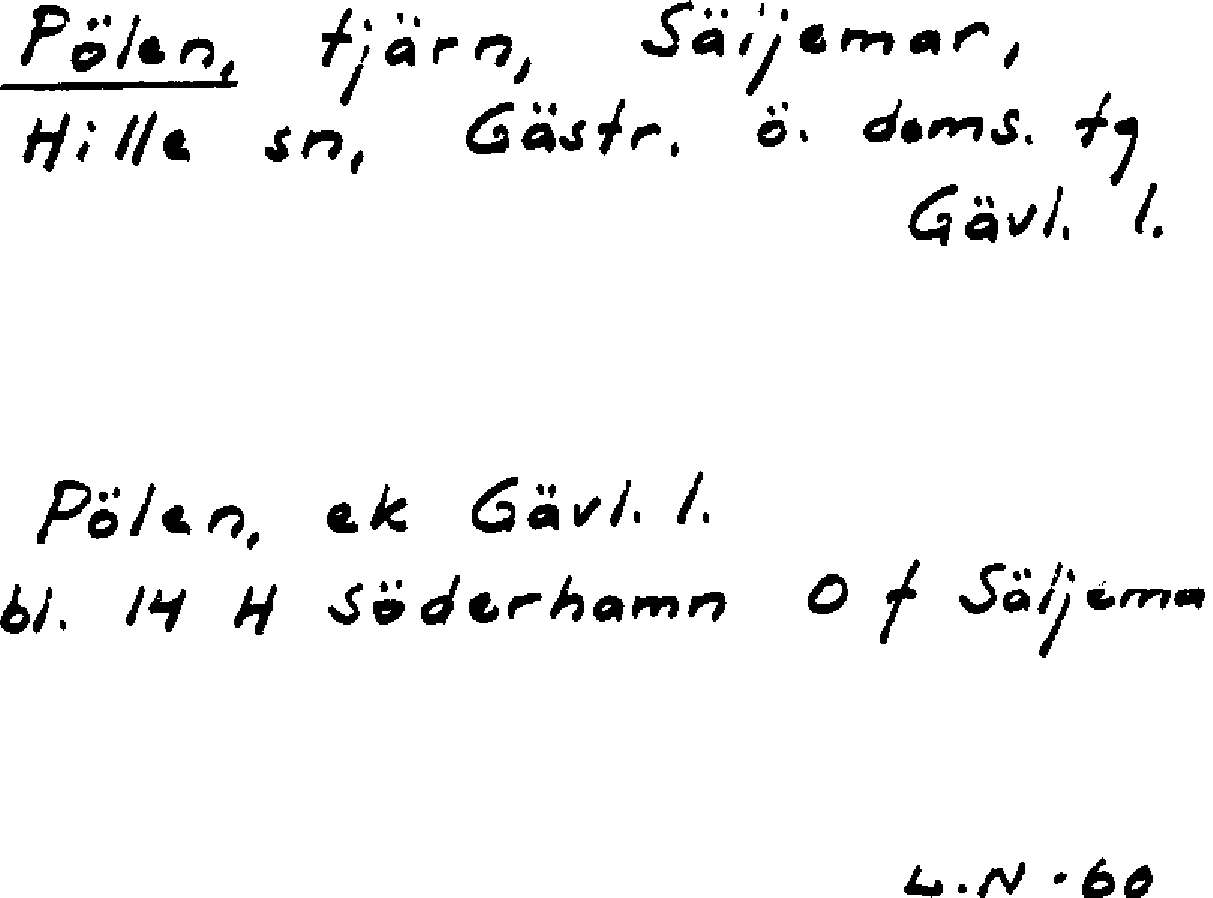 Pölen, tjärn, Säljemar,
Hille sn, Gästr. ö. doms. tg
Gävl. l.
Pölen, ek Gävl. l.
bl. 14 H Söderhamn O f Säljema
L.N. 60